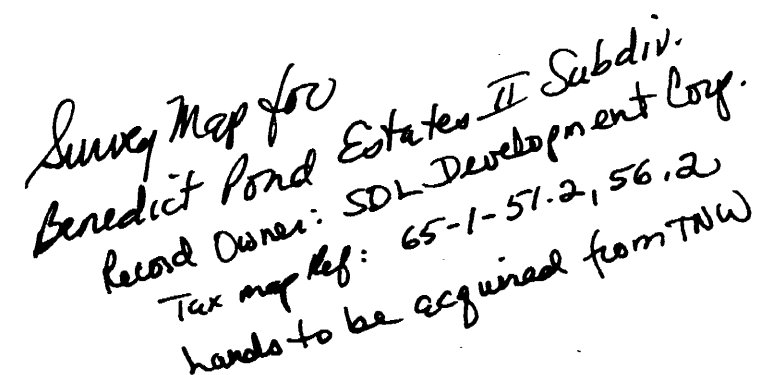 Survey Map for
Benedict Pond Estates II Subdiv.
Record Owner: SDL Development Corp.
Tax map Ref: 65-1-51.2, 56.2
lands to be acquired from TNW